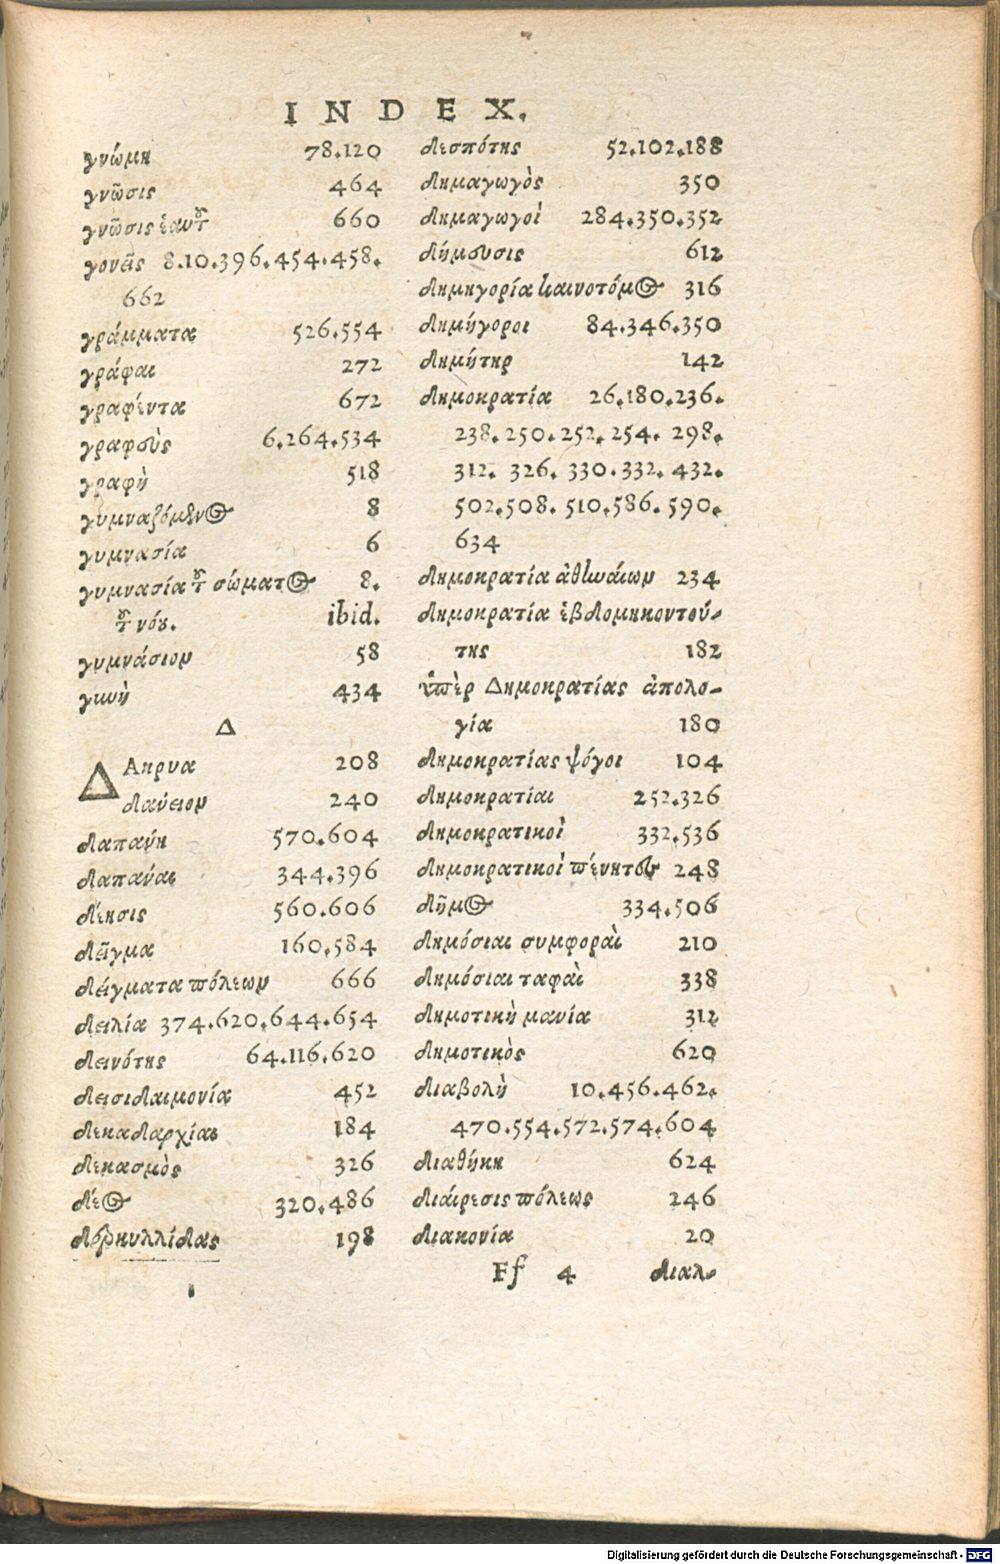 INDEX.
γνώμη 78.120
γνῶσις 464
γνῶσις ἑαυτοῦ 660
γονεῖς 8.10.396.454.458.
662
γράμματα 526.554
γράφαι 272
γραφέντα 672
γραφεὺς 6.264.534
γραφὴ 518
γυμναζόμενος 8
γυμνασία 6
γυμνασία τοῦ σώματος 8.
τοῦ νόου. ibid.
γυμνάσιον 58
γυνὴ 434
Δ
ΔΑκρυα 208
δάνειον 240
δαπάνη 570.604
δαπάναι 344.396
δέησις 560.606
δεῖγμα 160.584
δείγματα πόλεων 666
δειλία 374.620.644.654
δεινότης 64.116.620
δεισιδαιμονία 452
δεκαδαρχίαι 184
δεκασμὸς 326
δέος 320.486
δερκυλλίδας 198
δεσπότης 52.102.188
δημαγωγὸς 350
δημαγωγοὶ 284.350.352
δήμευσις 612
δημηγορία καινοτόμος 316
δημήγοροι 84.346.350
δημήτηρ 142
δημοκρατία 26.180.236.
238.250.252.254.298.
312.326.330.332.432.
502.508.510.586.590.
634
δημοκρατία ἀθηναίων 234
δημοκρατία ἑβδομηκοντού-
της 182
ὑπὲρ Δημοκρατίας ἀπολο-
γία 180
δημοκρατίας ψόγοι 104
δημοκρατίαι 252.326
δημοκρατικοὶ 332.536
δημοκρατικοὶ πένητες 248
δῆμος 334.506
δημόσιαι συμφοραὶ 210
δημόσιαι ταφαὶ 338
δημοτικὴ μανία 312
δημοτικὸς 620
διαβολὴ 10.456.462.
470.554.572.574.604
διαθήκη 624
διαίρεσις πόλεως 246
διακονία 20
Ff 4 διαλ-
Digitalisierung gefördert durch die Deutsche Forschungsgemeinschaft - DFG